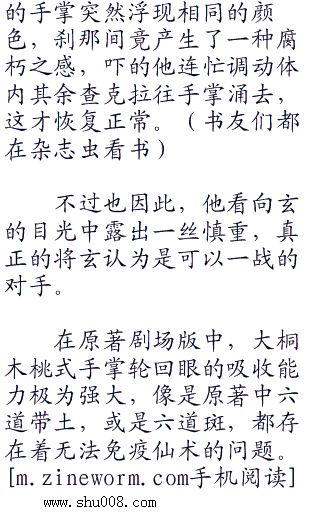 的手掌突然浮现相同的颜
色，刹那间竟产生了一种腐
朽之感，吓的他连忙调动体
内其余查克拉往手掌涌去，
这才恢复正常。（书友们都
在杂志虫看书）
不过也因此，他看向玄
的目光中露出一丝慎重，真
正的将玄认为是可以一战的
对手。
在原著剧场版中，大桐
木桃式手掌轮回眼的吸收能
力极为强大，像是原著中六
道带土，或是六道斑，都存
在着无法免疫仙术的问题。
[m.zineworm.com手机阅读]
www.shu008.com